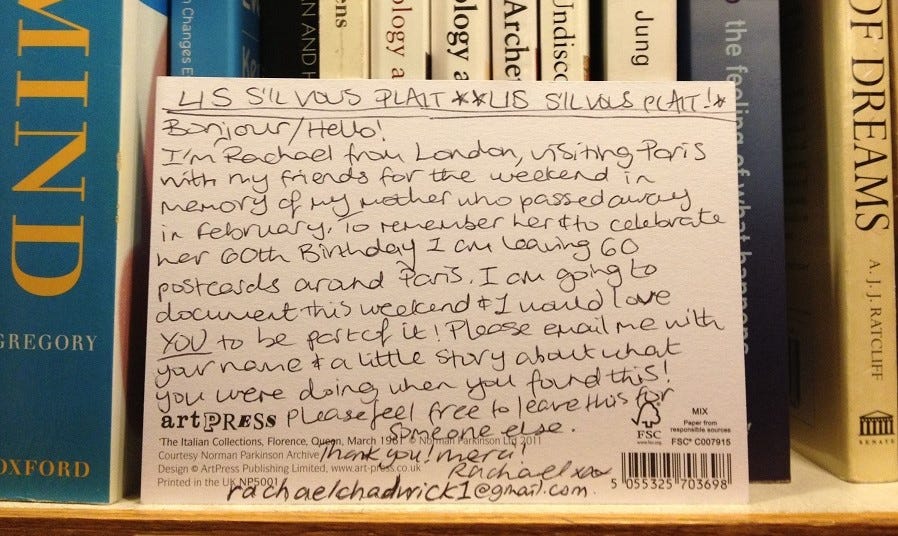 MIND
GREGORY
OXFORD
n Changes E
AN AND H
ens
ology a
ology a
Archet
Undisco
Jung
the feeling of what happens
OF DREAMS
A. J. J. RATCLIFF
SENATE
LIS S'IL VOUS PLAIT **LIS S'IL VOUS PLAIT!*
Bonjour/Hello!
I'm Rachael from London, visiting Paris
with my friends for the weekend in
memory of my mother who passed away
in February. To remember her & to celebrate
her 60th Birthday I am leaving 60
postcards around Paris. I am going to
document this weekend & I would love
YOU to be part of it! Please email me with
your name & a little story about what
you were doing when you found this!
artPRESS Please feel free to leave this for
someone else.
'The Italian Collections, Florence, Queen, March 1961' © Norman Parkinson Ltd 2011
Courtesy Norman Parkinson Archive
Thank you! merci!
Design © ArtPress Publishing Limited, www.art-press.co.uk
Rachael xxx
Printed in the UK NP5001
rachaelchadwick1@gmail.com.
FSC
www.fsc.org
MIX
Paper from
responsible sources
FSC® C007915
5 055325 703698